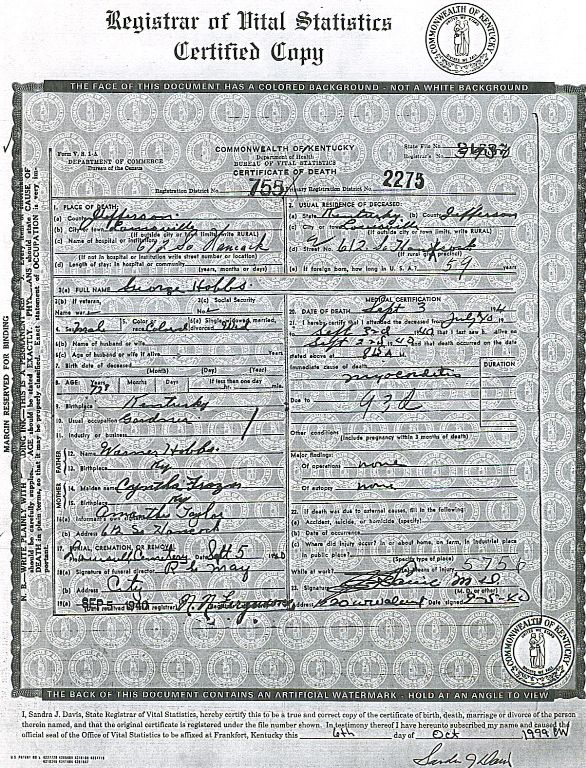 Registrar of Vital Statistics
Certified Copy
COMMONWEALTH OF KENTUCKY
THE FACE OF THIS DOCUMENT HAS A COLORED BACKGROUND - NOT A WHITE BACKGROUND
Form V. S. 1-A
DEPARTMENT OF COMMERCE
Bureau of the Census
COMMONWEALTH OF KENTUCKY
Department of Health
BUREAU OF VITAL STATISTICS
CERTIFICATE OF DEATH
State File No.
Registrar's No.
Registration District No. 755 Primary Registration District No. 2275
1. PLACE OF DEATH:
(a) County Jefferson
(b) City or town Louisville
(If outside city or town limits, write RURAL)
(c) Name of hospital or institution: 612 So. Hancock
(If not in hospital or institution write street number or location)
(d) Length of stay: In hospital or community
(years, months or days)
2. USUAL RESIDENCE OF DECEASED:
(a) State Kentucky (b) County Jefferson
(c) City or town Louisville
(If outside city or town limits, write RURAL)
(d) Street No. 612 So Hancock
(If rural give precinct)
(e) If foreign born, how long in U. S. A.? 59 years
3(a) FULL NAME George Hobbs
3(b) If veteran,
Name war
3(c) Social Security
No.
4. Sex Male 5. Color or race Colored 6(a) Single, widowed, married, divorced Wid
6(b) Name of husband or wife
6(c) Age of husband or wife if alive Years
7. Birth date of deceased
(Month) (Day) (Year)
8. AGE: Years Months Days If less than one day
hr. min.
9. Birthplace Kentucky
10. Usual occupation Gardner
11. Industry or business
FATHER
12. Name Warner Hobbs
13. Birthplace Ky
MOTHER
14. Maiden name Cynthia
15. Birthplace Ky
16(a) Informant's own signature Amantha Taylor
(b) Address 612 So Hancock
17. BURIAL, CREMATION, OR REMOVAL
Date Sept 5 1940
18(a) Signature of funeral director R. G. May
(b) Address City
19(a) SEP 5 1940
(Date received local registrar)
MEDICAL CERTIFICATION
20. DATE OF DEATH Sept
21. I hereby certify that I attended the deceased from July 30
that I last saw h alive on
Sept 2nd 40 and that death occurred on the date
stated above at
Immediate cause of death
DURATION
myocarditis
Due to 93d
Other conditions
(Include pregnancy within 3 months of death)
Major findings:
Of operations none
Of autopsy none
22. If death was due to external causes, fill in the following:
(a) Accident, suicide, or homicide (specify)
(b) Date of occurrence
(c) Where did injury occur? In or about home, on farm, in industrial place
in public place?
(Specify type of place)
While at work? Means of injury
23. Signature M.D.
(M. D. or other)
Address Date signed
MARGIN RESERVED FOR BINDING
COMMONWEALTH OF KENTUCKY
THE BACK OF THIS DOCUMENT CONTAINS AN ARTIFICIAL WATERMARK - HOLD AT AN ANGLE TO VIEW
I, Sandra J. Davis, State Registrar of Vital Statistics, hereby certify this to be a true and correct copy of the certificate of birth, death, marriage or divorce of the person
therein named, and that the original certificate is registered under the file number shown. In testimony thereof I have hereunto subscribed my name and caused the
official seal of the Office of Vital Statistics to be affixed at Frankfort, Kentucky this 6th day of Oct 1999 BW
Sandra J Davis